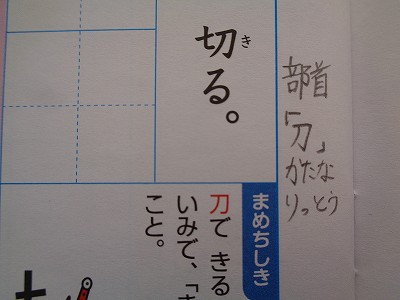 部首
「刀」
かたな
りっとう
切る。
き
まめちしき
刀で きる
いみで、「
こと。